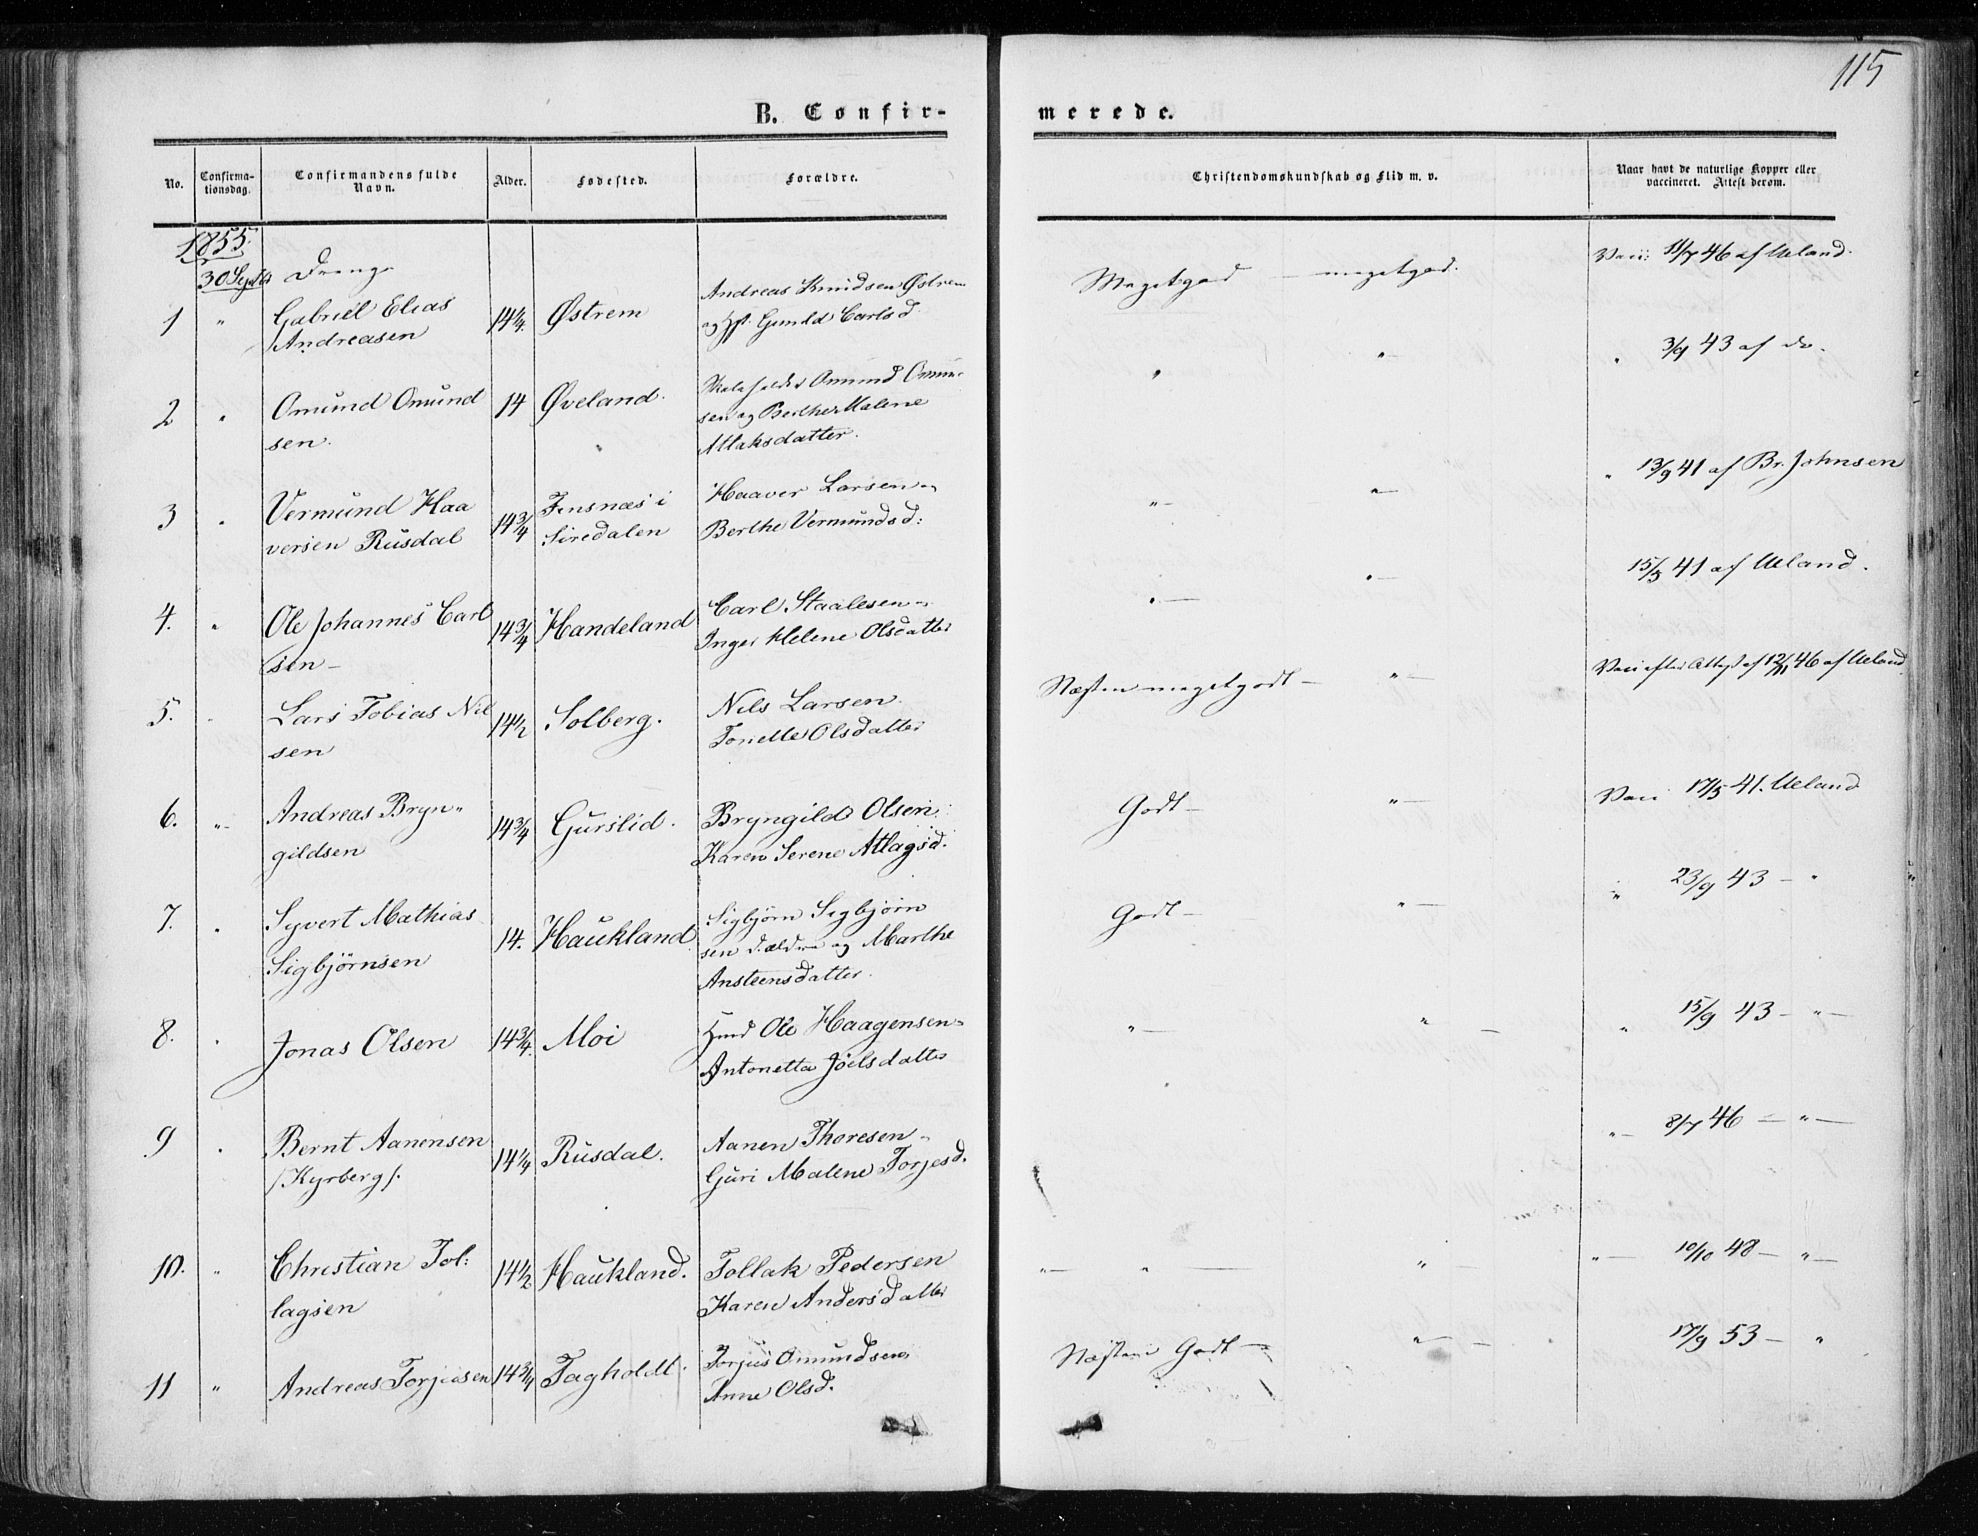 115
B. Confir-
merede.
No.
Confirma-
tionsdag.
Confirmandens fulde
Navn.
Alder.
Fødested.
Forældre.
Christendomskundskab og Flid m. v.
Naar havt de naturlige Kopper eller
vaccineret. Attest derom.
1855.
30 Septbr
Drenge
1 " Gabriel Elias
Andreasen
14¼ Østrem
Andreas Knudsen Østrem
og Gunild Carlsd.
Megetgod — megetgod.
Vacc: 11/7 46 af Ueland.
2 " Omund Omund
sen.
14 Øveland.
Omund Omun-
sen og Berthe Malene
Atlaksdatter.
" "
" 3/9 43 af do.
3 " Vermund Haa
versen Rusdal
14¾ Fensnæs i
Siredalen
Haaver Larsen "
Berthe Vermundsd:
"— "—
" 13/9 41 af Br. Johnsen
4. " Ole Johannes Carl
sen —
14¾ Handeland
Carl Staalesen "
Inger Helene Olsdatter
"— "—
15/5 41 af Ueland.
5. " Lars Tobias Nil
sen
14½ Solberg.
Nils Larsen.
Tonette Olsdatter
Næsten megetgodt — "—
Vacc efter Attest af 12/11 46 af Ueland
6. " Andreas Bryn"
gildsen
14¾ Gurslid.
Bryngild Olsen.
Karen Serene Atlagsd.
Godt — "—
Vacc 17/5 41. Ueland
7. " Syvert Mathias
Sigbjørnsen
14. Haukland
Sigbjørn Sigbjørn
sen d. ældre og Marthe
Ansteensdatter.
Godt — "—
" 23/9 43 — "
8. " Jonas Olsen
14¾ Moi
Ole Haagensen "
Antonetta Joelsdatter
"— " —
" 15/9 43 — "—
9 " Bernt Aanensen
/Kyrberg/.
14¼ Rusdal.
Aanen Thoresen "
Guri Malene Torjesd.
"— 8/7 46 — "—
10. " Christian Tol:
lagsen
14½ Haukland.
Tollak Pedersen
Karen Andersdatter
"— " — "—
"— 10/10 48 — "—
11 " Andreas Torjusen
14¾ Tagholdt.
Torjus Omundsen
Anne Olsd.
Næsten Godt — "— —
17/9 53 — "